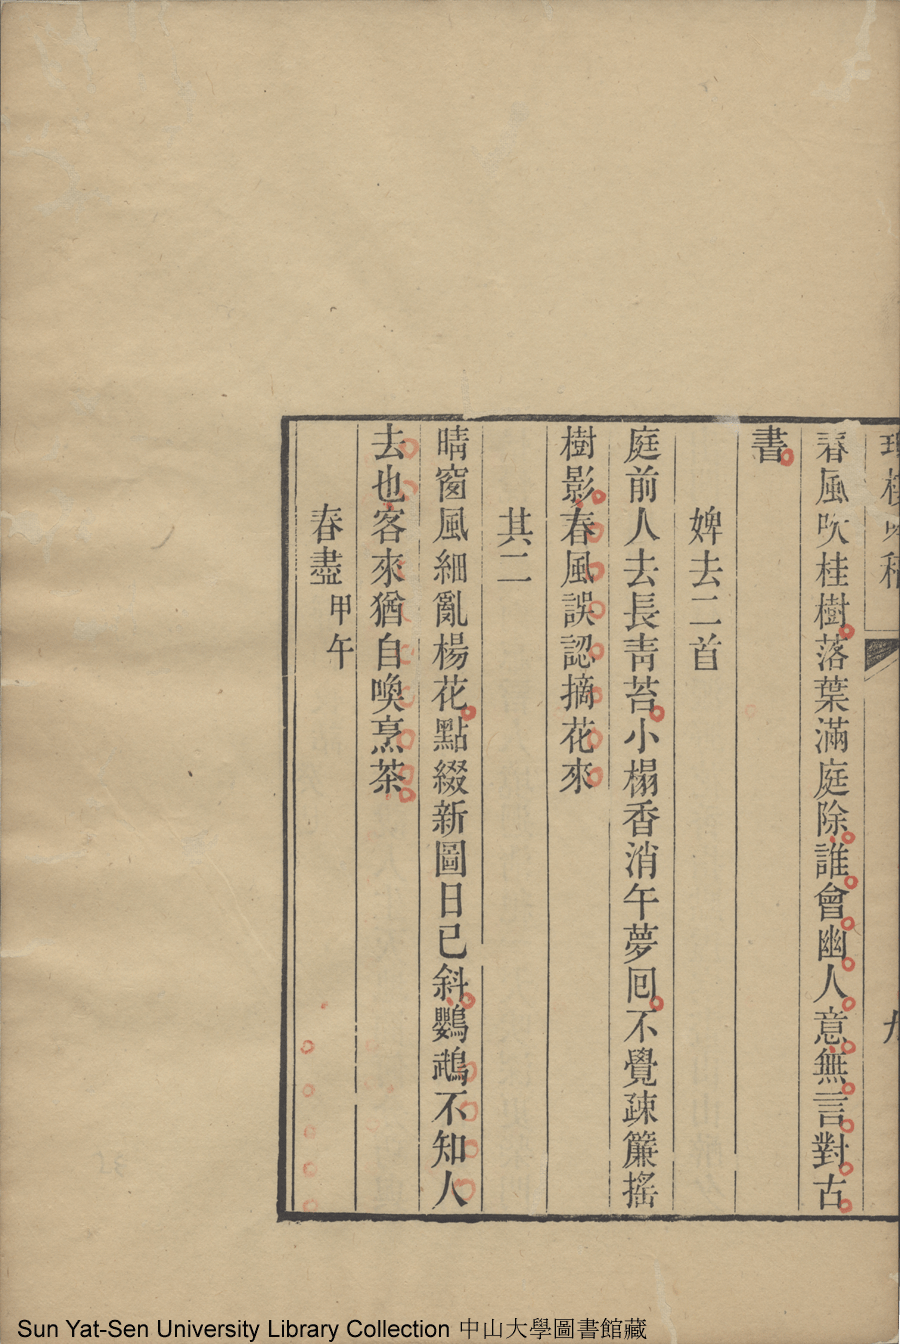 春風吹桂樹落葉滿庭除誰會幽人意無言對古
書
婢去二首
庭前人去長靑苔小榻香消午夢囘不覺疎簾搖
樹影春風誤認摘花來
其二
晴窗風細亂楊花點綴新圖日已斜鸚鵡不知人
去也客來猶自喚烹茶
春盡 甲午
Sun Yat-Sen University Library Collection 中山大學圖書館藏